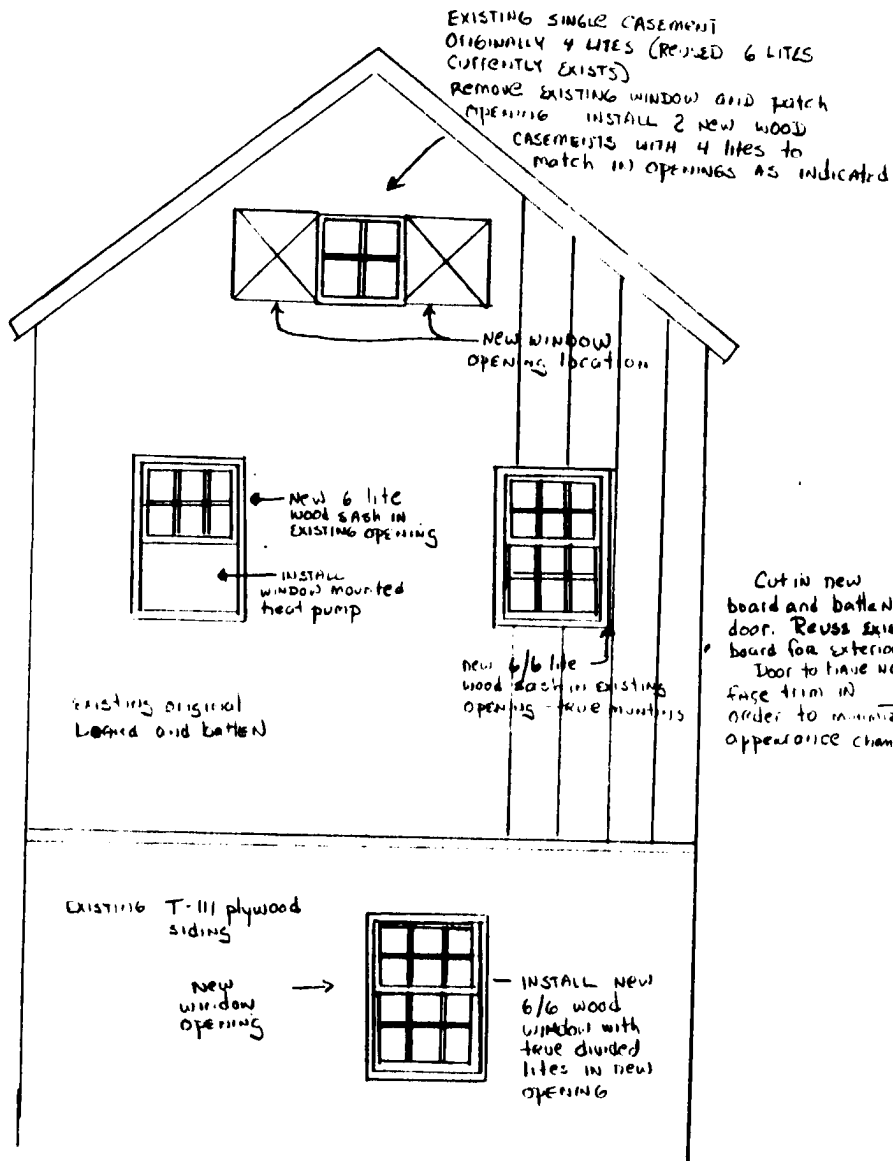 EXISTING SINGLE CASEMENT
ORIGINALLY 4 LITES (REUSED 6 LITES
CURRENTLY EXISTS)
REMOVE EXISTING WINDOW AND patch
OPENING INSTALL 2 NEW WOOD
CASEMENTS WITH 4 lites to
match IN OPENINGS AS INDICATED
NEW WINDOW
OPENING location
New 6 lite
wood sash in
EXISTING OPENING
INSTALL
WINDOW mounted
heat pump
new 6/6 lite
wood sash in EXISTING
OPENING - true muntins
Existing original
Board and batten
Cut in new
board and batten
door. Reuse
board for exterior
Door to have
face trim IN
order to
appearance
EXISTING T-111 plywood
siding
New
window
OPENING
INSTALL NEW
6/6 wood
WINDOW with
true divided
lites IN new
OPENING